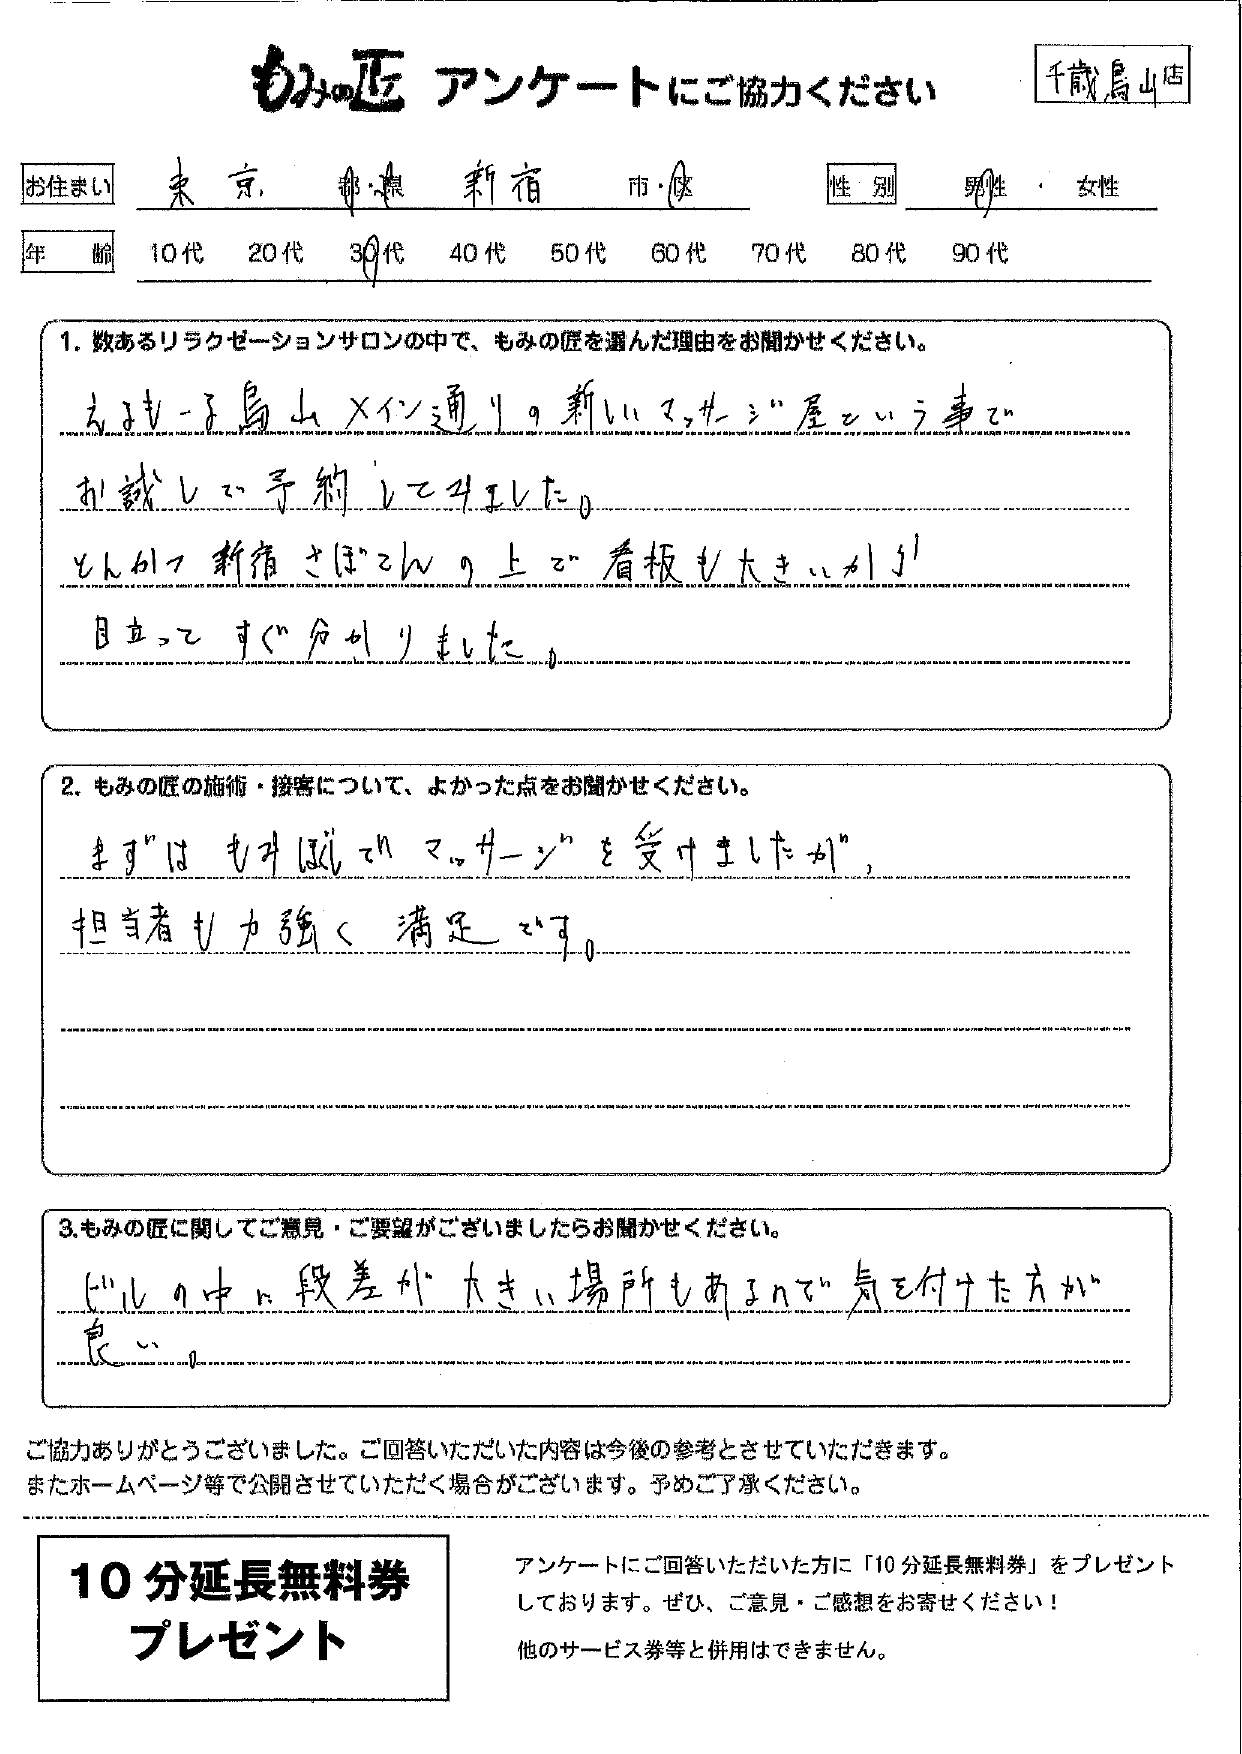 もみの匠 アンケートにご協力ください
千歳烏山店
お住まい 東京 都・県 新宿 市・区 性別 男性 ・ 女性
年齢 10代 20代 30代 40代 50代 60代 70代 80代 90代
1. 数あるリラクゼーションサロンの中で、もみの匠を選んだ理由をお聞かせください。
えるもーる烏山メイン通りの新しいマッサージ屋という事で
お試しで予約してみました。
とんかつ新宿さぼてんの上で看板も大きいから
目立ってすぐ分かりました。
2. もみの匠の施術・接客について、よかった点をお聞かせください。
まずはもみほぐしでマッサージを受けましたが、
担当者も力強く満足です。
3.もみの匠に関してご意見・ご要望がございましたらお聞かせください。
ビルの中に段差が大きい場所もあるので気を付けた方が
良い。
ご協力ありがとうございました。ご回答いただいた内容は今後の参考とさせていただきます。
またホームページ等で公開させていただく場合がございます。予めご了承ください。
10分延長無料券
プレゼント
アンケートにご回答いただいた方に「10分延長無料券」をプレゼント
しております。ぜひ、ご意見・ご感想をお寄せください！
他のサービス券等と併用はできません。